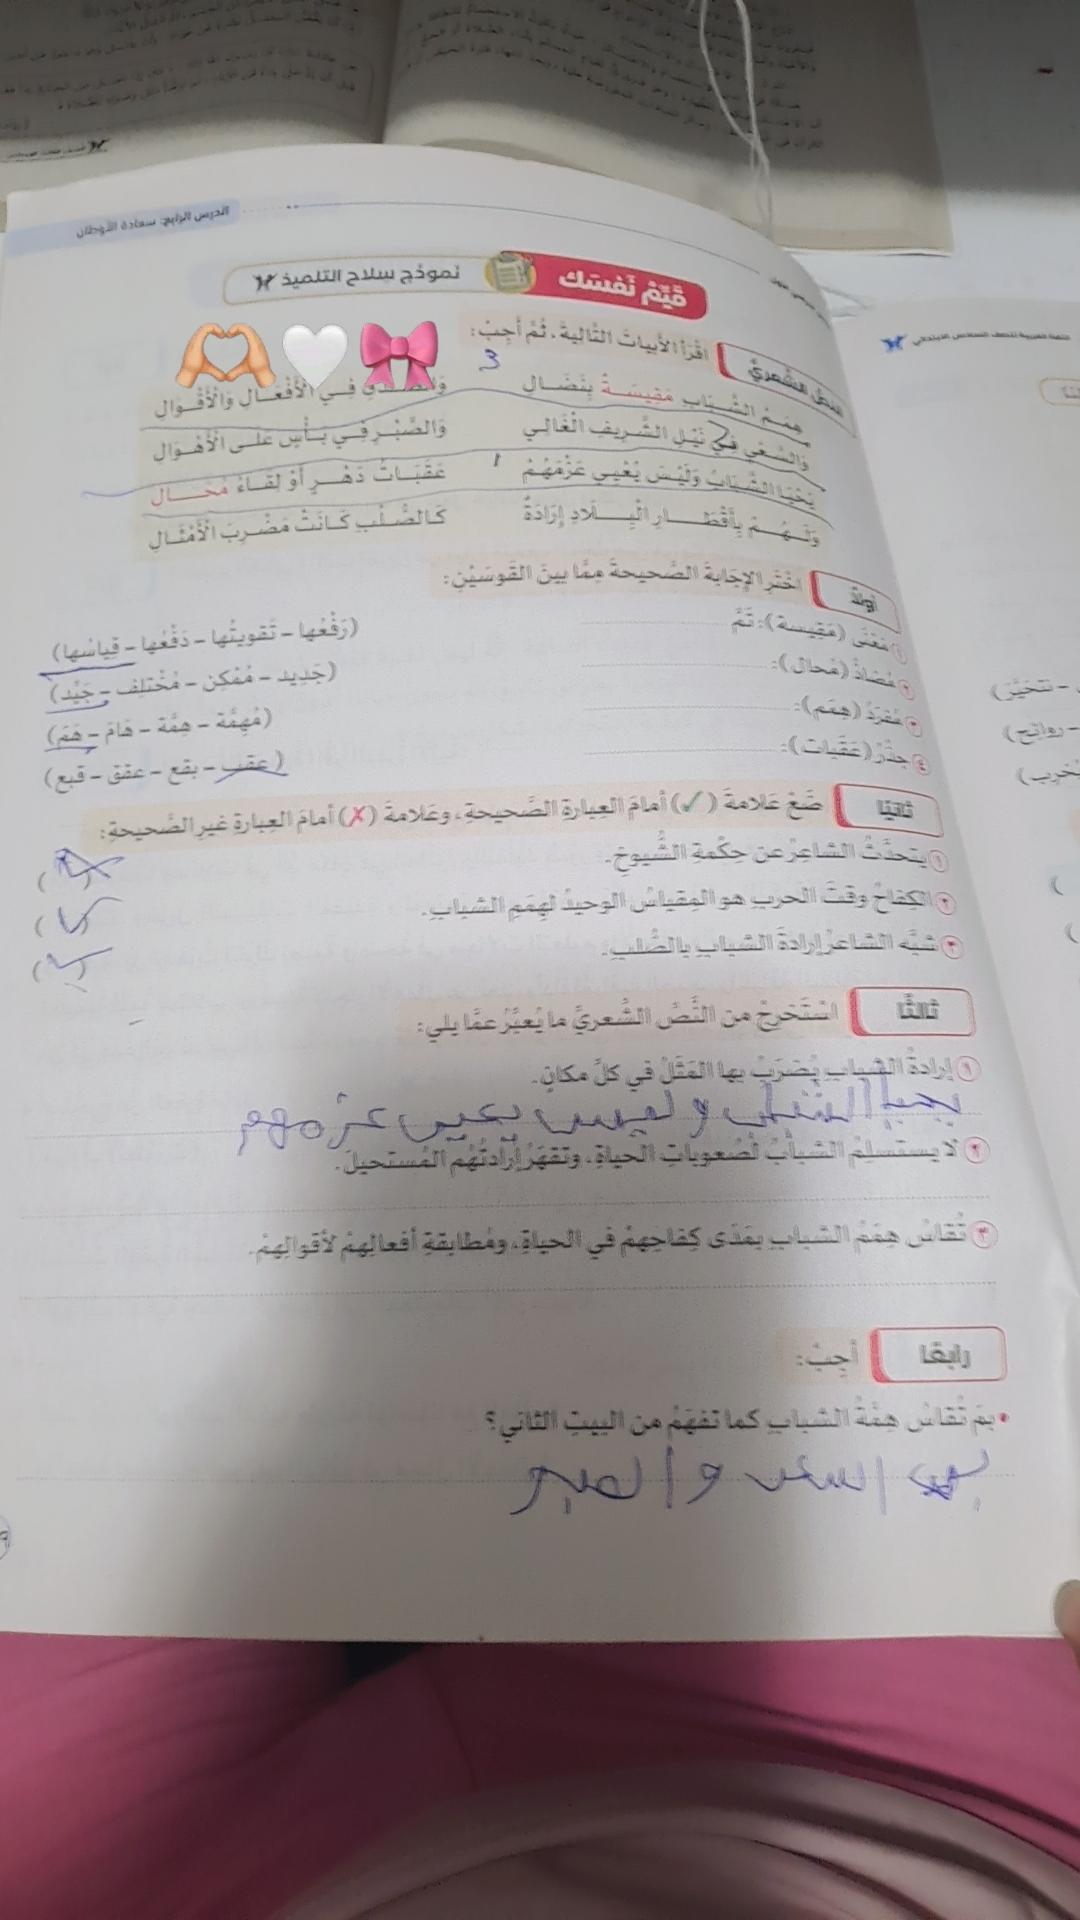 الدرس الرابع: سعادة الأوطان
قَيِّمْ نَفسَك
نموذج سلاح التلميذ
النص الشعري
اقْرَأ الأبياتَ التَّاليةَ، ثُمَّ أَجِبْ:
3
هِمَمُ الشَّبَابِ مَقِيسَةٌ بِنِضَالِ وَالصِّدْقِ فِي الْأَفْعَالِ وَالْأَقْوَالِ
وَالسَّعْيِ فِي نَيْلِ الشَّرِيفِ الْغَالِي وَالصَّبْرِ فِي بَأْسٍ عَلَى الْأَهْوَالِ
يَحْيَا الشَّبَابُ وَلَيْسَ يُعْيِي عَزْمَهُمْ عَقَبَاتُ دَهْرٍ أَوْ لِقَاءُ مُحَالِ
1
وَلَهُمْ بِأَقْطَارِ الْبِلَادِ إِرَادَةٌ كَالصُّلْبِ كَانَتْ مَضْرِبَ الْأَمْثَالِ
أولًا
اخْتَرِ الإجَابةَ الصَّحيحةَ مِمَّا بينَ القَوسَيْنِ:
١ مَعْنَى (مَقِيسة): تَمَّ (رَفْعُها - تَقويتُها - دَفْعُها - قِياسُها)
٢ مُضَادُّ (مُحال): (جَديد - مُمْكِن - مُخْتلِف - جَيِّد)
٣ مُفرَدُ (هِمَم): (مُهِمَّة - هِمَّة - هَامَ - هَمّ)
٤ جِذْرُ (عَقَبات): (عقب - بقع - عقق - قبع)
ثانيًا
ضَعْ عَلامةَ (✓) أمامَ العِبارةِ الصَّحيحةِ، وعَلامةَ (✗) أمامَ العِبارةِ غيرِ الصَّحيحةِ:
١ يتحدَّثُ الشاعِرُ عن حِكْمةِ الشُّيوخِ. ( )
٢ الكِفاحُ وقتَ الحربِ هو المِقياسُ الوحيدُ لهِمَمِ الشبابِ. (✓)
٣ شبَّه الشاعرُ إرادةَ الشبابِ بالصُّلبِ. (✓)
ثالثًا
اسْتَخرِجْ من النَّصِّ الشِّعريِّ ما يُعبِّرُ عمَّا يلي:
١ إرادةُ الشبابِ يُضرَبُ بها المَثَلُ في كلِّ مكانٍ.
يحيا الشباب وليس يعيي عزمهم
٢ لا يستسلِمُ الشبابُ لصُعوباتِ الحياةِ، وتقهَرُ إرادتُهُم المُستحيلَ.
٣ تُقاسُ هِمَمُ الشبابِ بمَدَى كِفاحِهِمْ في الحياةِ، ومُطابقةِ أفعالِهِمْ لأقوالِهِمْ.
رابعًا
أجِبْ:
• بمَ تُقاسُ هِمَّةُ الشبابِ كما تفهَمُ من البيتِ الثاني؟
السعى والصبر